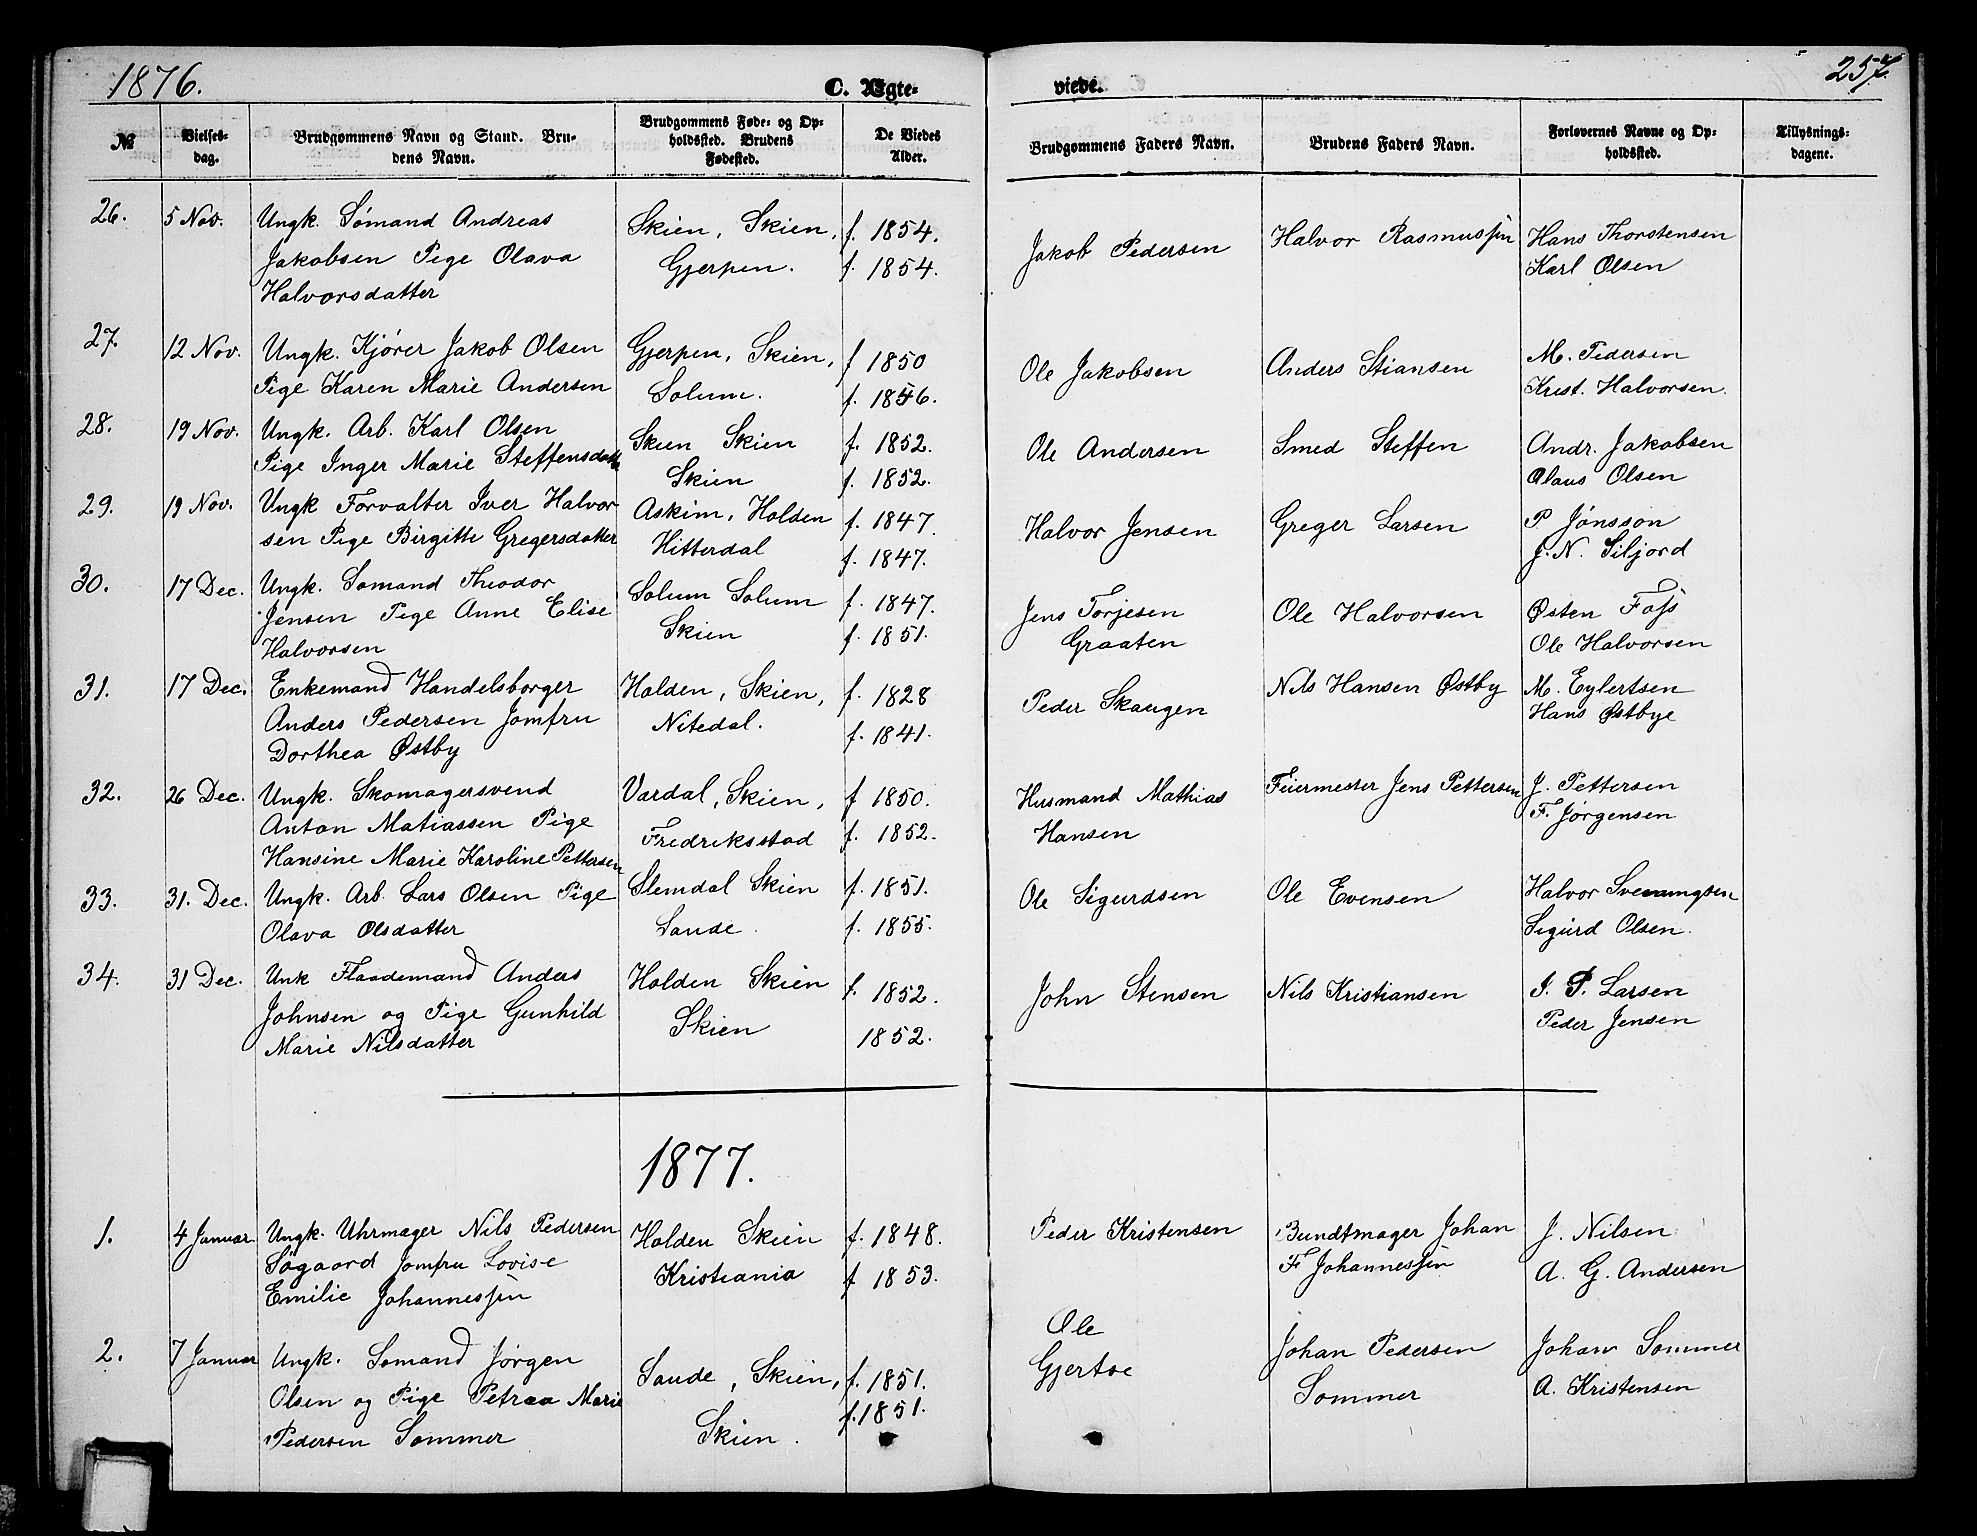 1876.
C. Ægte-
viede.
257.
№
Vielses-
dag.
Brudgommens Navn og Stand. Bru-
dens Navn.
Brudgommens Føde- og Op-
holdssted. Brudens
Fødested.
De Viedes
Alder.
Brudgommens Faders Navn.
Brudens Faders Navn.
Forlovernes Navne og Op-
holdssted.
Tillysnings-
dagene.
26.
5 Nov.
Ungk. Sømand Andreas
Jakobsen Pige Olava
Halvorsdatter
Skien, Skien,
Gjerpen.
f. 1854.
f. 1854.
Jakob Pedersen
Halvor Rasmussen
Hans Thorstensen
Karl Olsen
27.
12 Nov.
Ungk. Kjører Jakob Olsen
Pige Karen Marie Andersen
Gjerpen, Skien,
Solum.
f 1850
f. 1846.
Ole Jakobsen
Anders Stiansen
M. Pedersen
Krist. Halvorsen.
28.
19 Nov.
Ungk. Arb. Karl Olsen
Pige Inger Marie Steffensdatt
Skien Skien
Skien
f. 1852.
f. 1852.
Ole Andersen
Smed Steffen
Andr. Jakobsen
Olaus Olsen
29.
19 Nov.
Ungk Forvalter Iver Halvor
sen Pige Birgitte Gregersdatter
Askim, Holden
Hitterdal
f. 1847.
f. 1847.
Halvor Jensen
Greger Larsen
P Jønsson
J. N. Siljord
30.
17 Dec.
Ungk. Sømand Theodor
Jensen Pige Anne Elise
Halvorsen
Solum Solum
Skien
f. 1847.
f. 1851.
Jens Torjesen
Graaten
Ole Halvorsen
Østen Foss
Ole Halvorsen
31.
17 Dec.
Enkemand Handelsborger
Anders Pedersen Jomfru
Dorthea Østby
Holden, Skien,
Nitedal.
f. 1828
f. 1841.
Peder Skaugen
Nils Hansen Østby
M. Eylertsen
Hans Østbye
32.
26 Dec.
Ungk. Skomagersvend
Anton Matiassen Pige
Hansine Marie Karoline Pettersen
Vardal, Skien,
Fredriksstad
f 1850.
f. 1852.
Husmand Mathias
Hansen
Feiermester Jens Pettersen
J. Pettersen
F. Jørgensen
33.
31. Dec.
Ungk. Arb. Lars Olsen Pige
Olava Olsdatter
Slemdal Skien
Sande.
f. 1851.
f. 1855.
Ole Sigurdsen
Ole Evensen
Halvor
Sigurd Olsen.
34.
31 Dec.
Unk Flaademand Anders
Johnsen og Pige Gunhild
Marie Nilsdatter
Holden Skien
Skien
f. 1852.
1852.
John Stensen
Nils Kristiansen
I. P. Larsen
Peder Jensen
1877.
1.
4 Januar
Ungk. Uhrmager Nils Pedersen
Søgaard Jomfru Lovise
Emilie Johannessen
Holden Skien
Kristiania
f. 1848.
f 1853.
Peder Kristensen
Bundtmager Johan
F Johannessen
J. Nilsen
A. G. Andersen
2.
7 Januar
Ungk. Sømand Jørgen
Olsen og Pige Petraa Marie
Pedersen Sommer
Sande, Skien,
Skien.
f. 1851.
f. 1851.
Ole
Gjertøe
Johan Pedersen
Sommer
Johan Sommer
A. Kristensen